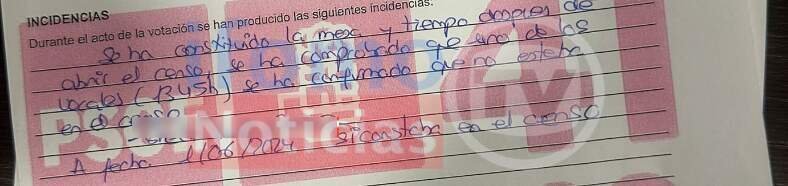 INCIDENCIAS
Durante el acto de la votación se han producido las siguientes incidencias:
Se ha constituido la mesa y tiempo despues de
abrir el censo, se ha comprobado qe uno de los
vocales (B45h) se ha confirmado que no estaba
en el censo
A fecha 1/06/2024 si constaba en el censo
PSOE Noticias